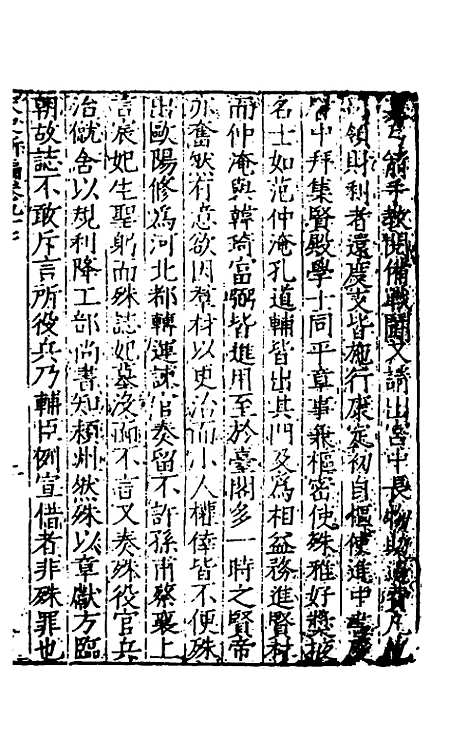 弓箭手教閱備戰鬬又請出宮中長物助邊費凡
領財利者還度支皆施行康定初自樞使進中書慶
中拜集賢殿學士同平章事兼樞密使殊雅好獎掖
名士如范仲淹孔道輔皆出其門及爲相益務進賢材
而仲淹與韓琦富弼皆進用至於臺閣多一時之賢帝
亦奮然有意欲因羣材以更治而小人權倖皆不便殊
出歐陽修爲河北都轉運諫官奏留不許孫甫蔡襄上
言宸妃生聖躬而殊誌妃墓沒而不言又奏殊役官兵
治僦舍以規利降工部尚書知潁州然殊以章獻方臨
朝故誌不敢斥言所役兵乃輔臣例宣借者非殊罪也